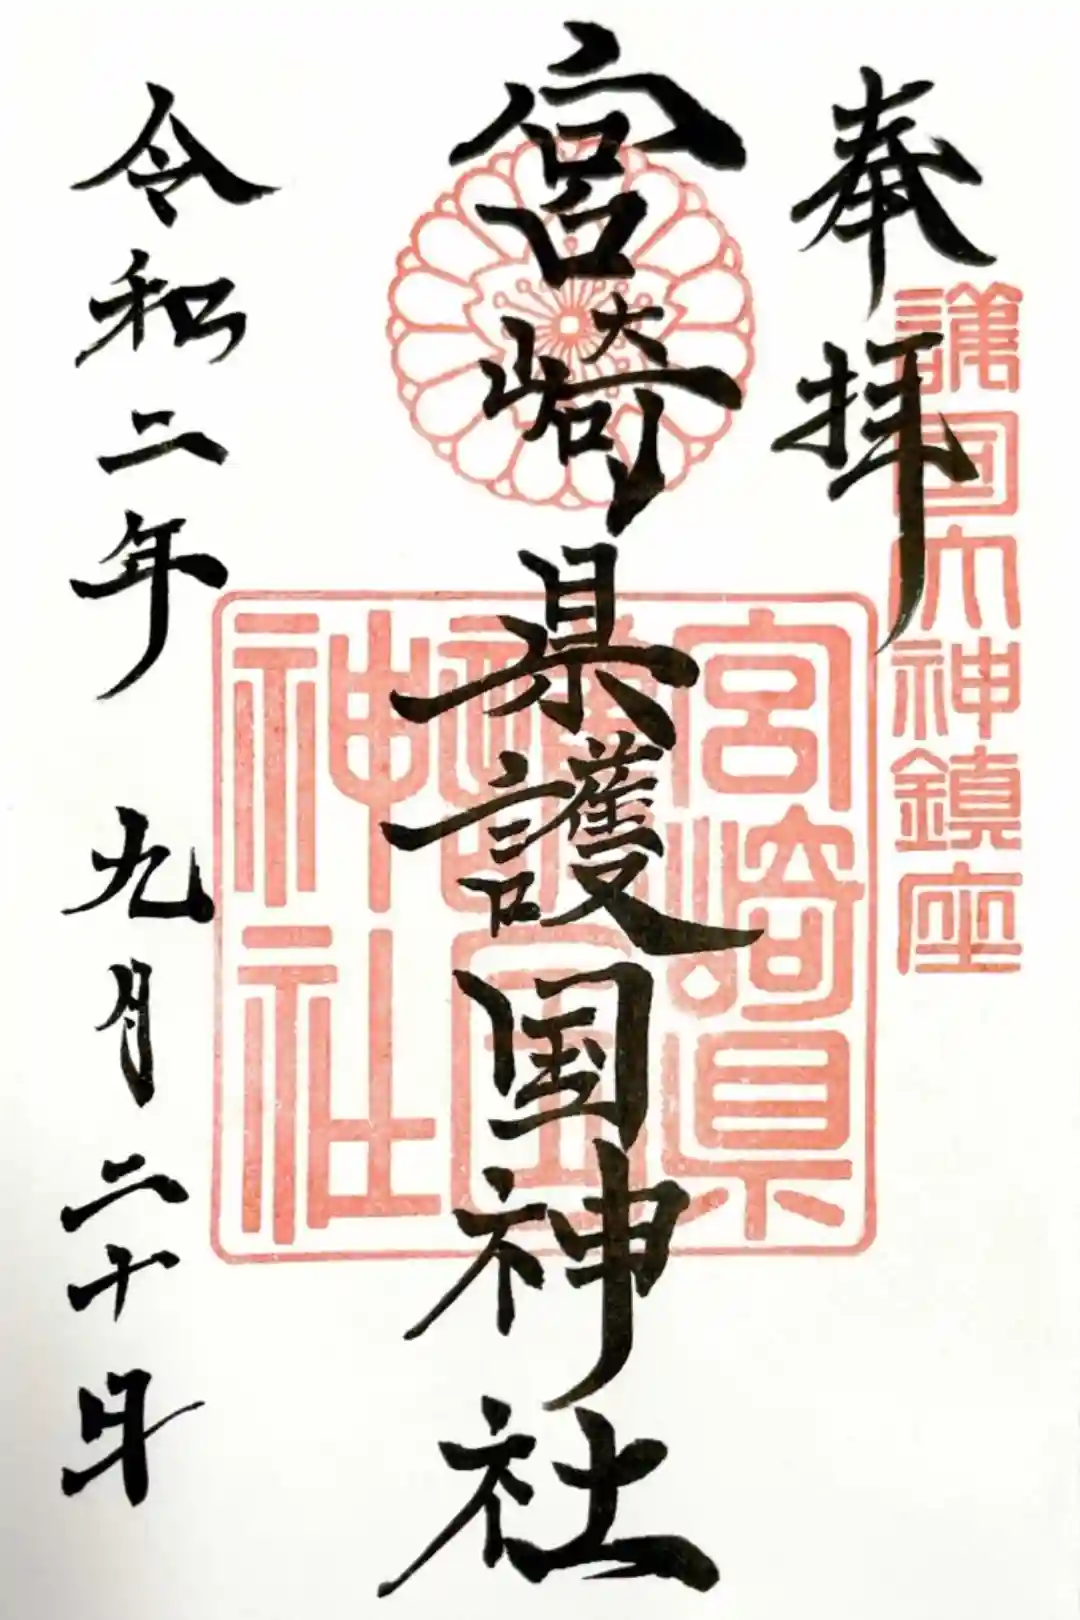 奉拝
護国大神鎮座
宮崎県護国神社
宮崎県
護国
神社
令和二年 九月二十日